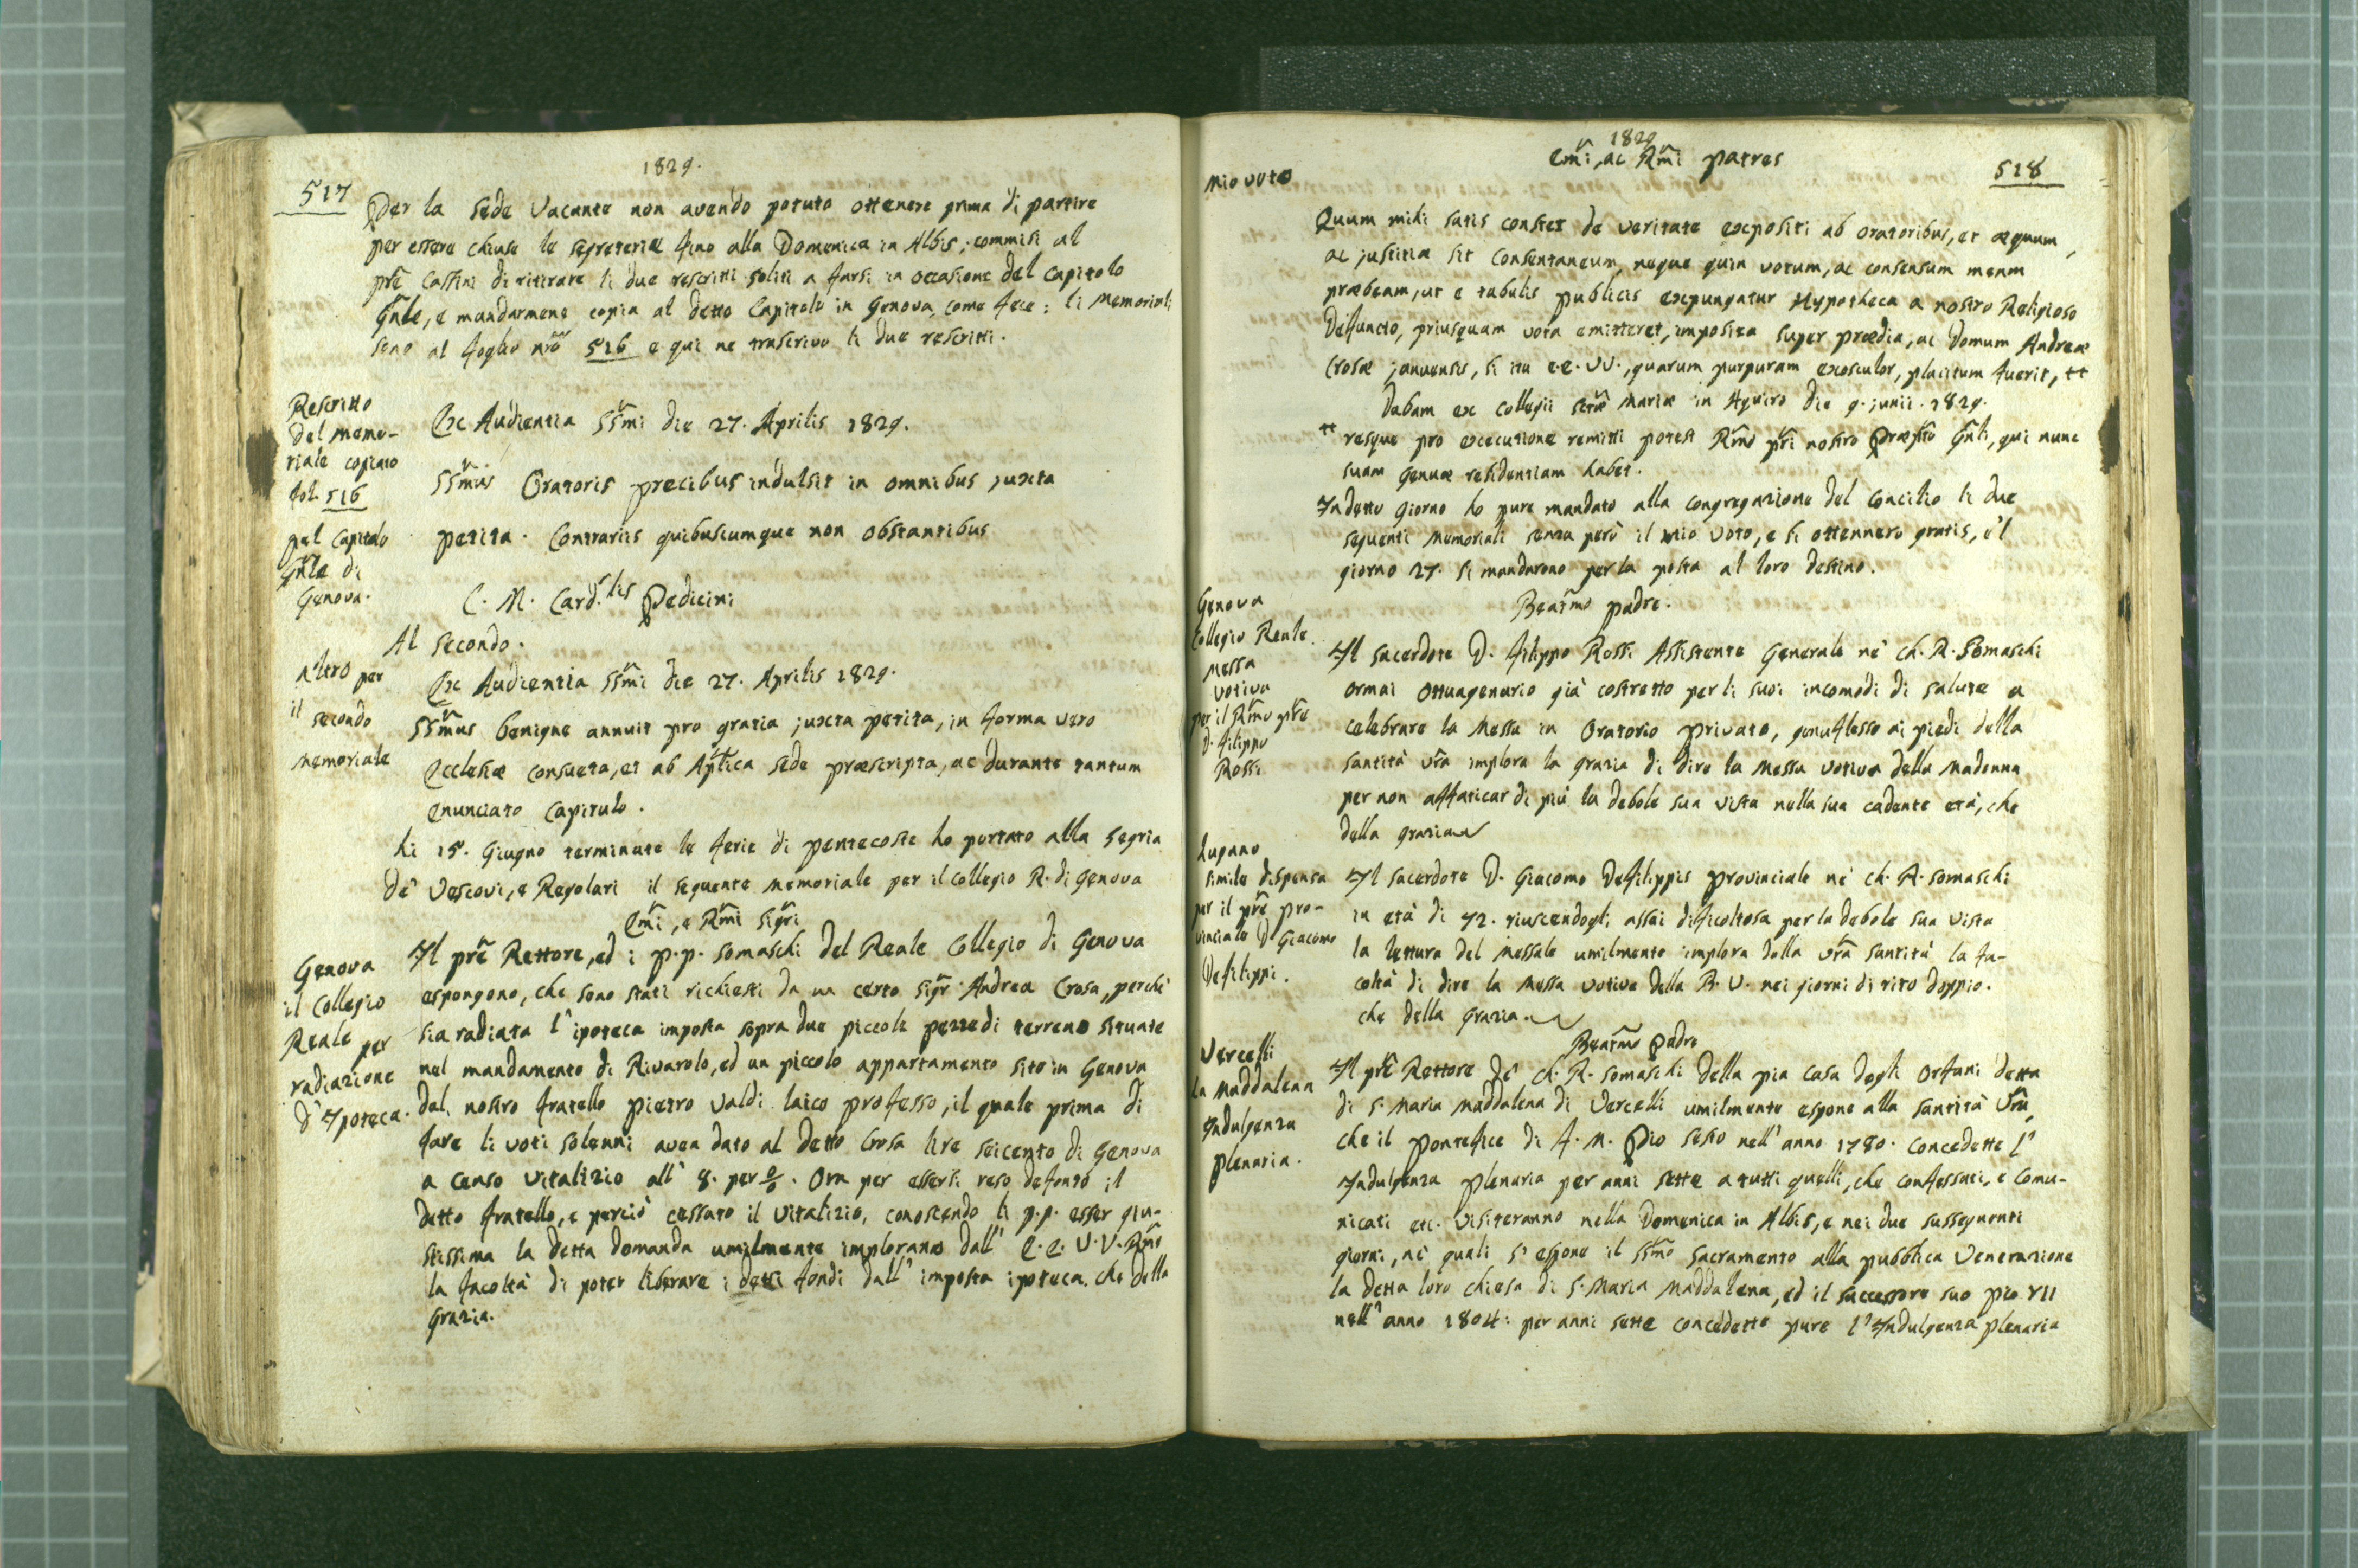 1829.
517
Per la sede Vacante non avendo potuto ottenere prima di partire
per essere chiuse le segreterie fino alla Domenica in Albis, commisi al
prē Cassini di ritirare li due rescritti soliti a farsi in occasione del Capitolo
Gn̄le, e mandarmene copia al detto Capitolo in Genova, come fece: li memoriali
sono al foglio nrō 516 e qui ne trascrivo li due rescritti.
Rescritto
del memo-
riale copiato
fol. 516
pel Capitolo
Gn̄le di
Genova.
Ex Audientia SSm̄i die 27. Aprilis 1829.
SSm̄us Oratoris precibus indulsit in omnibus juxta
petita. Contrariis quibuscumque non obstantibus
C. M. Card.lis Pedicini
Al secondo.
Altro per
il secondo
memoriale
Ex Audientia SSm̄i die 27. Aprilis 1829.
SSm̄us benigne annuit pro gratia juxta petita, in forma vero
Ecclesiæ consueta, et ab Aplīca sede præscripta, ac durante tantum
enunciato Capitulo.
Li 15. Giugno terminate le ferie di pentecoste ho portato alla segria
de' Vescovi, e Regolari il seguente memoriale per il collegio R. di Genova
Em̄i, e Rm̄i sigr̄i
Genova
il Collegio
Reale per
radiazione
d'Ipoteca.
Il prē Rettore, ed i p.p. somaschi del Reale Collegio di Genova
espongono, che sono stati richiesti da un certo sigr̄ Andrea Crosa, perchè
sia radiata l'ipoteca imposta sopra due piccole pezze di terreno situate
nel mandamento di Rivarolo, ed un piccolo appartamento sito in Genova
dal nostro fratello pietro Valdi laico professo, il quale prima di
fare li voti solenni avea dato al detto Crosa lire seicento di Genova
a censo vitalizio all' 8. per %. Ora per essersi reso defonto il
detto fratello, e perciò cessato il vitalizio, conoscendo li p.p. esser giu-
stissima la detta domanda umilmente implorano dall' E.E. V.V. Rm̄e
la facoltà di poter liberare i detti fondi dall' imposta ipoteca. che della
grazia.
1829
518
mio voto
Em̄i, ac Rm̄i patres
Quum mihi satis constet de veritate expositi ab oratoribus, et æquum,
ac justitiæ sit consentaneum, neque quin votum, ac consensum meum
præbeam, ut e tabulis publicis expungatur Hypotheca a nostro Religioso
Defuncto, priusquam vota emitteret, imposita super prædia, ac Domum Andreæ
Crosæ januensis, si ita E.E. VV., quarum purpuram exosculor, placitum fuerit, ++
Dabam ex Collegii sctæ Mariæ in Aquiro die 9. junii. 1829.
++ resque pro executione remitti potest Rm̄o pr̄i nostro Præpto Gn̄li, qui nunc
suam Genuæ residentiam habet.
In detto giorno ho pure mandato alla congregazione del Concilio li due
seguenti memoriali senza però il mio voto, e si ottennero gratis, e'l
giorno 27. si mandarono per la posta al loro destino.
Genova
Collegio Reale
Messa
votiva
per il Rm̄o prē
D. filippo
Rossi
Beatm̄o padre.
Il sacerdote D. filippo Rossi Assistente Generale ne' Ch. R. Somaschi
ormai ottuagenario già costretto per li suoi incomodi di salute a
celebrare la messa in Oratorio privato, genuflesso ai piedi della
santità vrā implora la grazia di dire la messa votiva della madonna
per non affaticar di più la debole sua vista nella sua cadente età, che
della grazia
Lugano
simile dispensa
per il prē pro-
vinciale D. Giacomo
Defilippi.
Il sacerdote D. Giacomo Defilippis provinciale ne' ch. R. somaschi
in età di 72. riuscendogli assai dificoltosa per la debole sua vista
la lettura del messale umilmente implora dalla vrā santità la fa-
coltà di dire la messa votiva della B. V. nei giorni di rito doppio.
che della grazia.
Vercelli
la maddalena
Indulgenza
plenaria.
Beatm̄o Padre
Il prē Rettore de' ch. R. somaschi della pia casa degli orfani detta
di S. Maria Maddalena di Vercelli umilmente espone alla santità Vrā,
che il pontefice di f. M. Pio sesto nell' anno 1780. concedette l'
Indulgenza plenaria per anni sette a tutti quelli, che confessati, e comu-
nicati etc. visiteranno nella Domenica in Albis, e nei due susseguenti
giorni, ne' quali s' espone il SSm̄o Sacramento alla pubblica venerazione
la detta loro chiesa di S. Maria Maddalena, ed il successore suo Pio VII
nell' anno 1804: per anni sette concedette pure l'Indulgenza plenaria